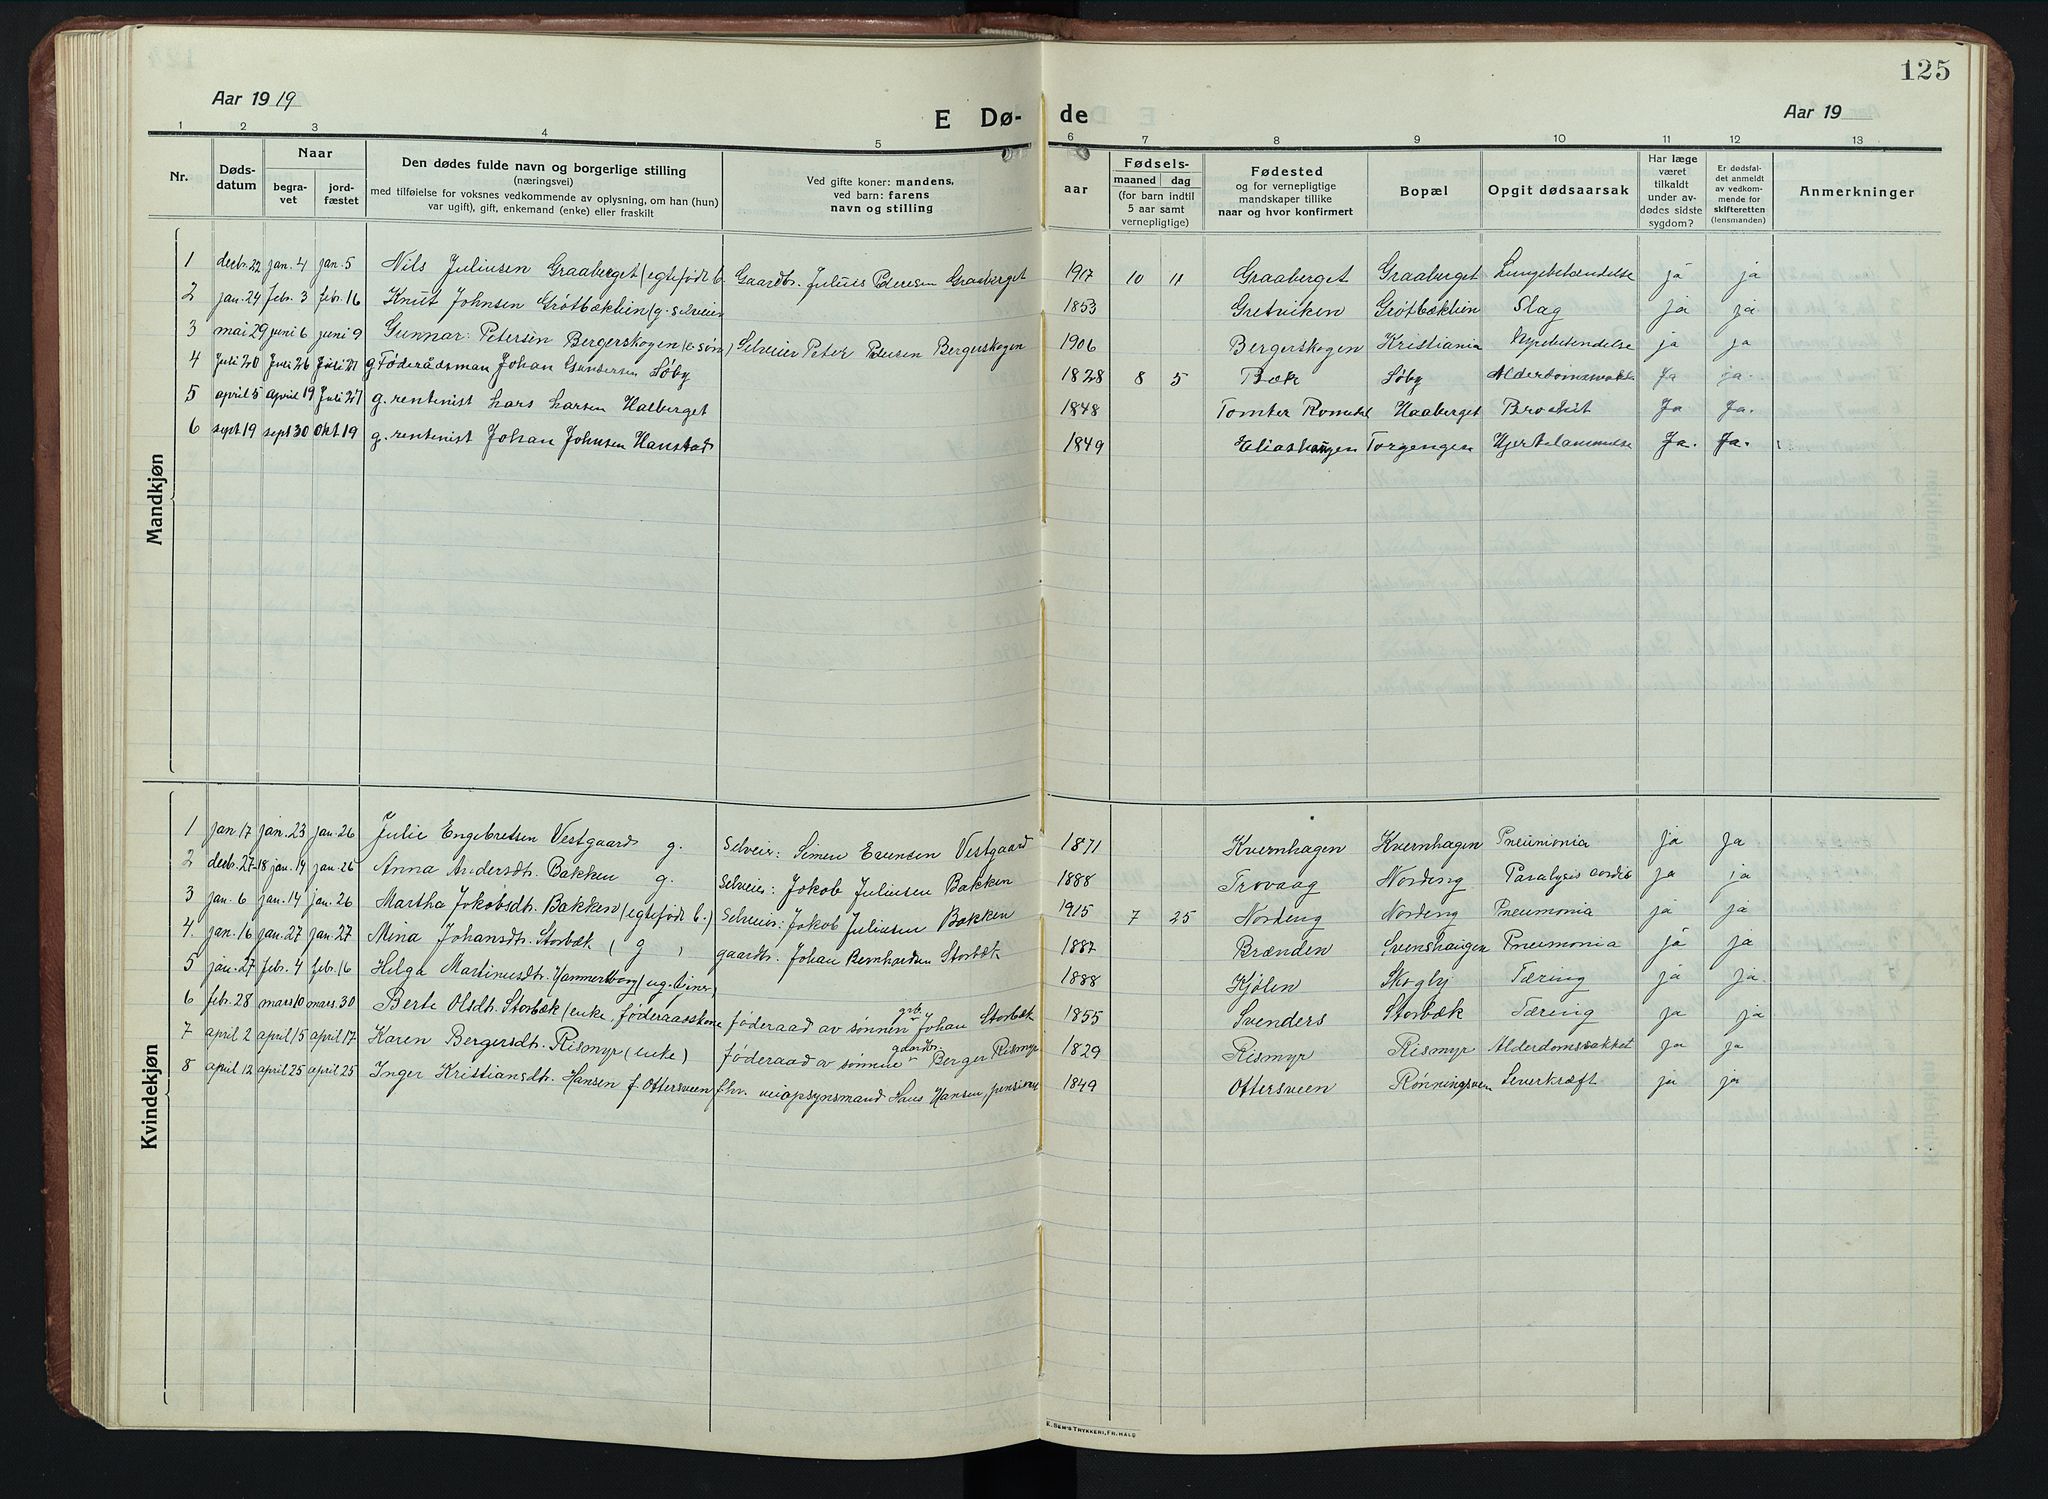 125
Aar 1919
E Dø-
de
Aar 19
1 2 3 4 5 6 7 8 9 10 11 12 13
Nr.
Døds-
datum
Naar
begra-
vet
jord-
fæstet
Den dødes fulde navn og borgerlige stilling
(næringsvei)
med tilføielse for voksnes vedkommende av oplysning, om han (hun)
var ugift), gift, enkemand (enke) eller fraskilt
Ved gifte koner: mandens,
ved barn: farens
navn og stilling
aar
Fødsels-
maaned dag
(for barn indtil
5 aar samt
vernepligtige)
Fødested
og for vernepligtige
mandskaper tillike
naar og hvor konfirmert
Bopæl
Opgit dødsaarsak
Har læge
været
tilkaldt
under av-
dødes sidste
sygdom?
Er dødsfal-
det anmeldt
av vedkom-
mende for
skifteretten
(lensmanden)
Anmerkninger
Mandkjøn
1 decbr. 22 jan. 4 jan. 5 Nils Juliusen Graaberget (egtefødt b. Gaardbr. Julius Petersen Graaberget 1917 10 11 Graaberget Graaberget Lungebetændelse ja ja
2 jan. 24 febr. 3 febr. 16 Knut Johnsen Grøtbæklien (g. selveier 1853 Gretviken Grøtbæklien Slag ja ja
3 mai 29 juni 6 juni 9 Gunnar Petersen Bergerskogen (e. søn) Selveier Peter Petersen Bergerskogen 1906 Bergerskogen Kristiania Nyrebetendelse ja ja
4 Juli 20 Juli 26 Juli 27 g. Føderådsman Johan Gundersen Søby 1828 8 5 Bæk Søby Alderdomssvakh. Ja ja.
5 april 5 april 19 Juli 27 g. rentenist Lars Larsen Halberget 1848 Tomter Romedal Haaberget Ja Ja.
6 sept 19 sept 30 Okt 19 g. rentenist Johan Johnsen Hanstad 1849 Eliashaugen Torgengen Hjertelammelse Ja. Ja.
Kvindekjøn
1 jan 17 jan. 23 jan. 26 Julie Engebretsen Vestgaard g. Selveier: Simen Evensen Vestgaard 1871 Kvernhagen Kvernhagen Pneumonia ja ja
2 decbr. 27-18 jan. 14 jan. 26 Anna Andersdtr. Bakken g. Selveier: Jakob Juliusen Bakken 1888 Trovaag Nordeng Paralysis cordis ja ja
3 jan. 6 jan. 14 jan. 26 Martha Jokobsdtr. Bakken (egtefødt b.) Selveier: Jakob Juliusen Bakken 1915 7 25 Nordeng Nordeng Pneumonia ja ja
4. jan. 16 jan. 27 jan. 27 Mina Johansdtr. Storbæk (g) gaardbr. Johan Bernhardsen Storbæk 1887 Brænden Svenshaugen Pneumonia ja ja
5 jan. 27 febr. 4 febr. 16 Hilga Martinusdtr. Hammertborg (ug. tjener) 1888 Kjølen Skogby Tæring ja ja.
6 febr. 28 mars 10 mars. 30 Berte Olsdtr. Storbæk (enke, føderaadskone føderaad av sønnen grb. Johan Storbæk 1855 Svenders Storbæk Tæring ja ja
7 april 2 april 15 april 17 Karen Bergersdtr. Rismyr (enke) føderaad av sønnen gaardbr. Berger Rismyr 1829 Rismyr Rismyr Alderdomssvakhet ja ja
8 april 12 april 25 april 25 Inger Kristiansdtr. Hansen f. Ottersveen fhv. veiopsynsmand Hans Hansen, pensionist 1849 Ottersveen Rønningsveen Leverkræft ja ja
E. SEM'S TRYKKERI, FR.HALD